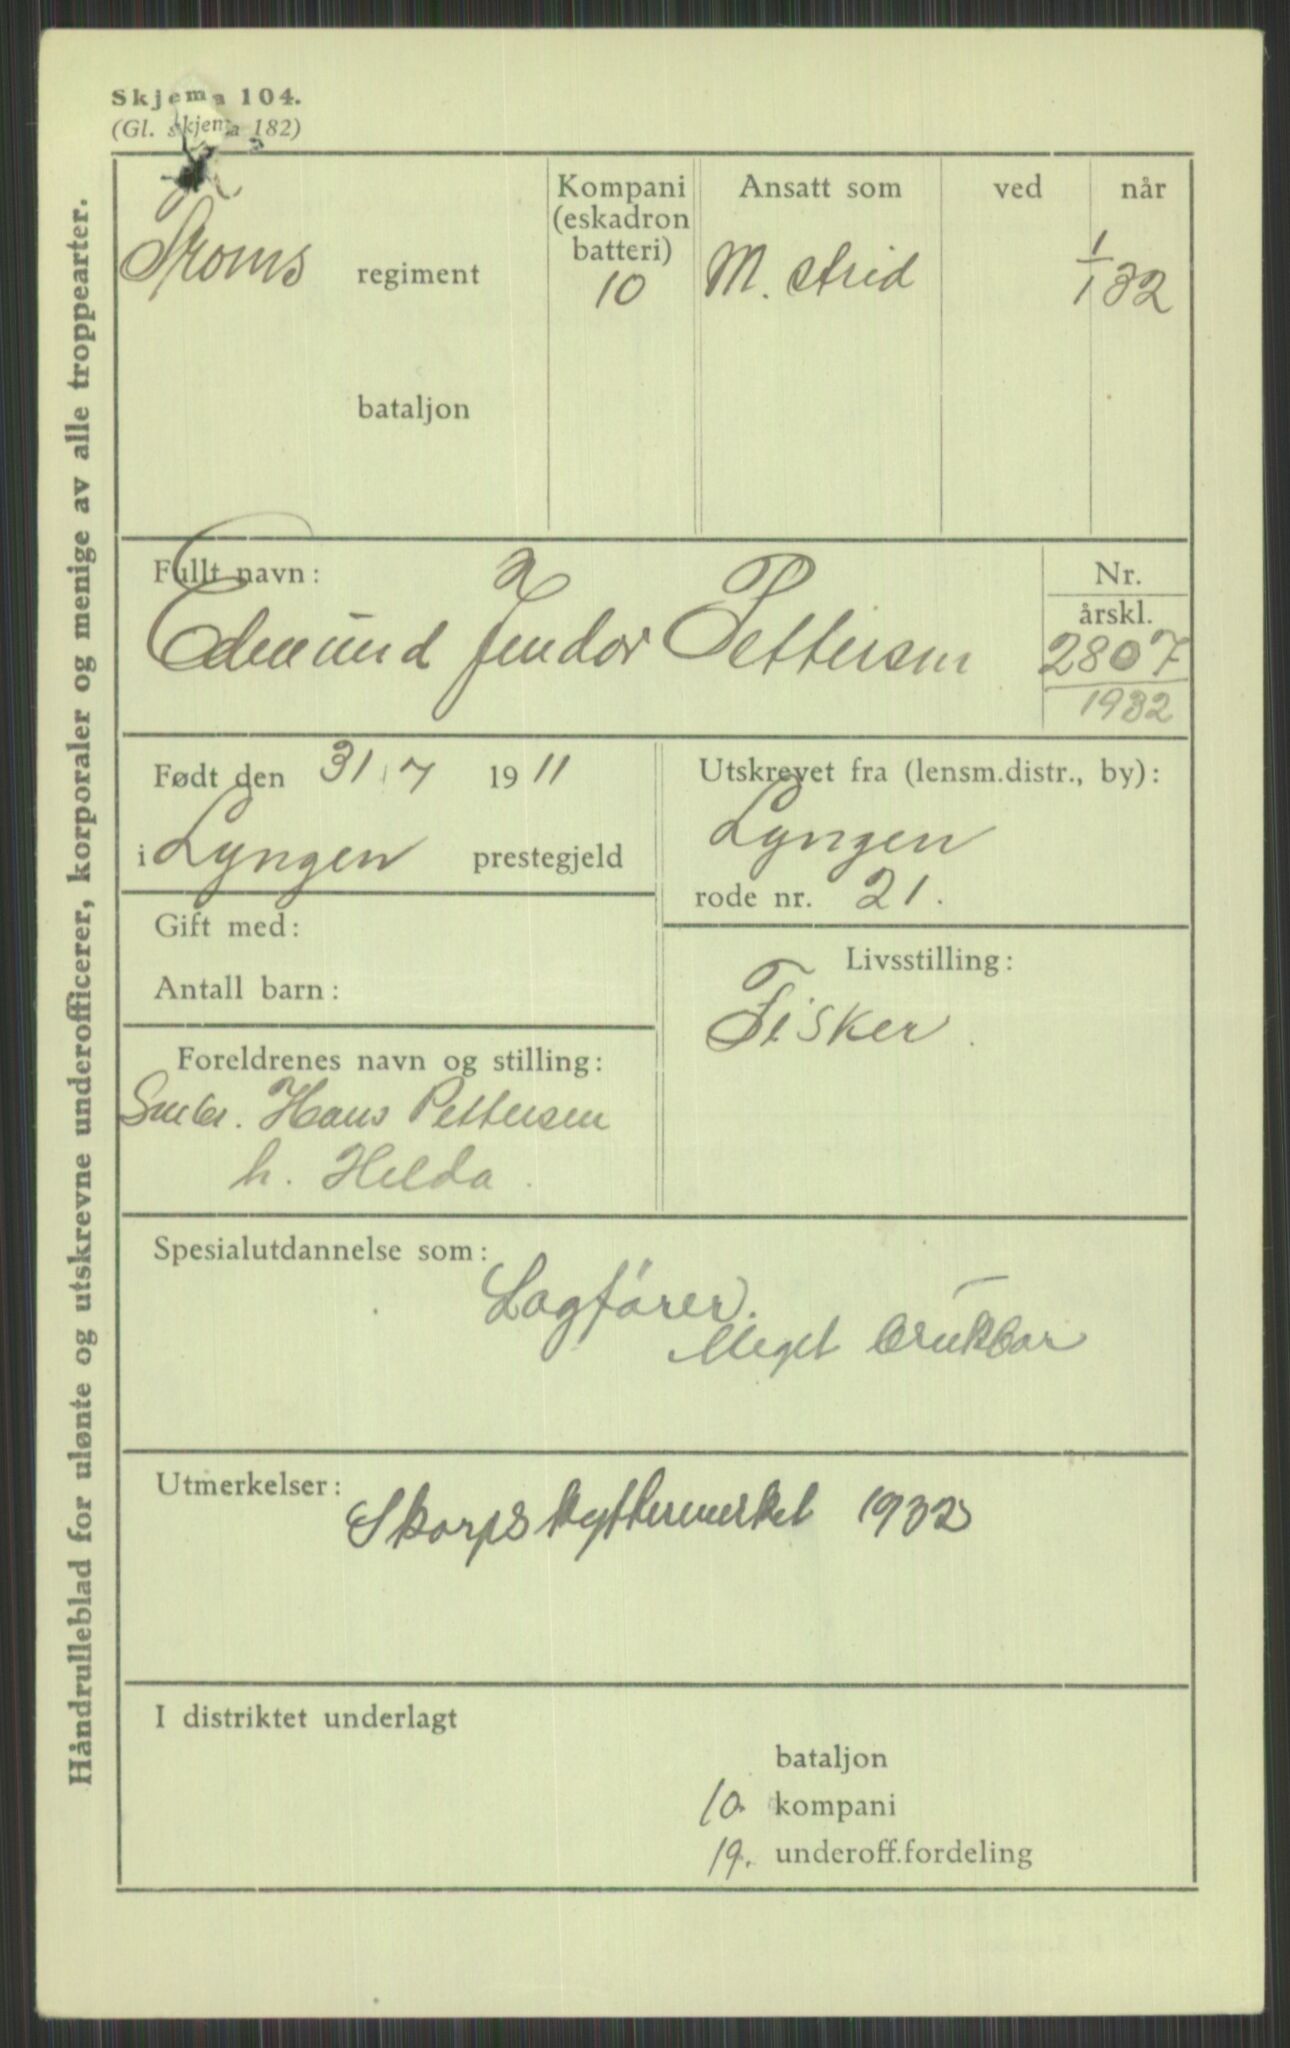 Skjema 104.
(Gl. skjema 182)
Håndrulleblad for ulønte og utskrevne underofficerer, korporaler og menige av alle troppearter.
Troms regiment
bataljon
Kompani
(eskadron
batteri)
10
Ansatt som
M. strid
ved
når
1/1 32
Fullt navn:
Edmund Jendor Pettersen
Nr.
årskl.
2807
1932
Født den 31/7 1911
i Lyngen prestegjeld
Utskrevet fra (lensm.distr., by):
Lyngen
rode nr. 21.
Gift med:
Antall barn:
Livsstilling:
Fisker
Foreldrenes navn og stilling:
Smbr. Hans Pettersen
h. Helda
Spesialutdannelse som:
Lagfører.
Meget brukbar
Utmerkelser:
Skarpskyttermerket 1932
I distriktet underlagt
bataljon
10. kompani
19. underoff.fordeling